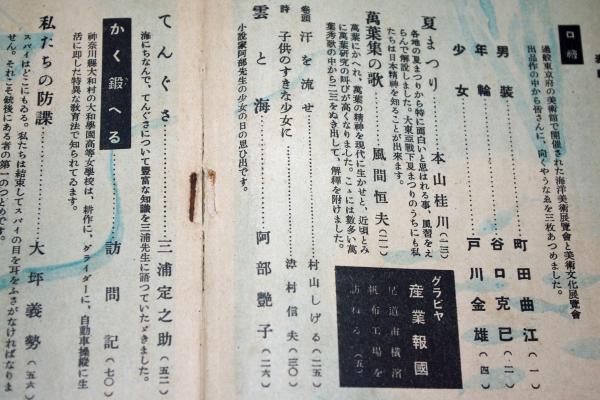 口繪
過般東京府の美術館で開催された海洋美術展覽會と美術文化展覽會
出品作の中から皆さんに、向くやうな畫を三枚あつめました。
男裝 町田曲江(一)
年輪 谷口克巳(二)
少女 戸川金雄(四)
グラビヤ
産業報國
尾道市橫濱
帆布工場を
訪ねる(五)
夏まつり 本山桂川(一三)
各地の夏まつりから特に面白いと思はれる事、風習をえ
らんで解說しました。大東亞戰下夏まつりのうちにも私
たちは日本精神を知ることが出來ます。
萬葉集の歌 風間恒夫(二一)
萬葉にかへれ、萬葉の精神を現代に生かせと、近頃とみ
に萬葉研究の叫びが高くなりました。こゝには數多い萬
葉秀歌の中から二三をぬき出して、解釋を附けました。
卷頭 汗を流せ 村山しげる(二五)
詩 子供のすきな少女に 津村信夫(三〇)
雲と海 阿部艶子(二六)
小說家阿部先生の少女の日の思ひ出です。
てんぐさ 三浦定之助(五二)
海にちなんで、てんぐさについて豐富な知識を三浦先生に語つていたゞきました。
かく鍛へる 訪問記(七〇)
神奈川縣大和村の大和學園高等女學校は、耕作に、グライダーに、自動車操縱に生
活に卽した特異な敎育法で知られてゐます。
私たちの防諜 大坪義勢(五六)
スパイはどこにもゐる。私たちは結束してスパイの目を耳をふさがなければなりま
せん。それこそ銃後にある者の第一のつとめです。